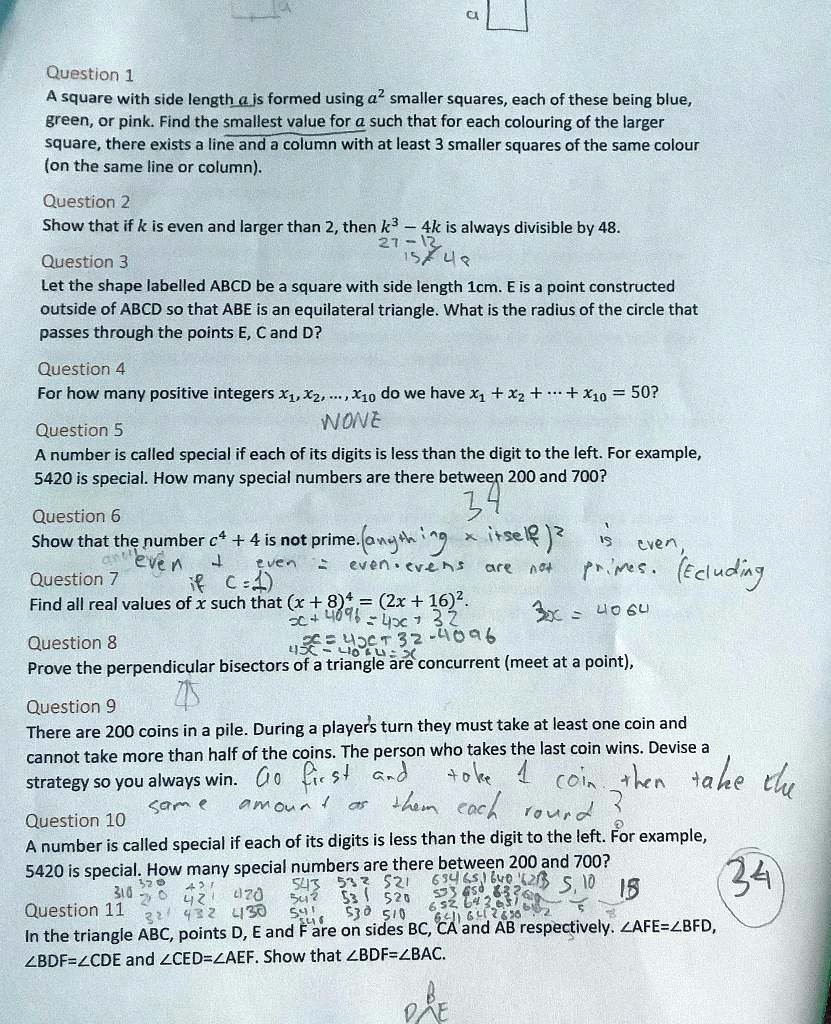 a
a
Question 1
A square with side length a is formed using a² smaller squares, each of these being blue,
green, or pink. Find the smallest value for a such that for each colouring of the larger
square, there exists a line and a column with at least 3 smaller squares of the same colour
(on the same line or column).
Question 2
Show that if k is even and larger than 2, then k³ − 4k is always divisible by 48.
27 - 12
15 48
Question 3
Let the shape labelled ABCD be a square with side length 1cm. E is a point constructed
outside of ABCD so that ABE is an equilateral triangle. What is the radius of the circle that
passes through the points E, C and D?
Question 4
For how many positive integers x₁, x₂, ..., x₁₀ do we have x₁ + x₂ + ⋯ + x₁₀ = 50?
NONE
Question 5
A number is called special if each of its digits is less than the digit to the left. For example,
5420 is special. How many special numbers are there between 200 and 700?
34
Question 6
Show that the number c⁴ + 4 is not prime. (anything x itself)² is even,
even + even = even. evens are not primes. (Ecluding
Question 7 if C=1)
Find all real values of x such that (x + 8)⁴ = (2x + 16)².
x + 4096 = 4x + 32 3x = 4064
x = 4x + 32 - 4096
4x - 4064 = x
Question 8
Prove the perpendicular bisectors of a triangle are concurrent (meet at a point),
Question 9
There are 200 coins in a pile. During a player's turn they must take at least one coin and
cannot take more than half of the coins. The person who takes the last coin wins. Devise a
strategy so you always win. Go first and take 1 coin. then take the
same amount as them each round
Question 10
A number is called special if each of its digits is less than the digit to the left. For example,
5420 is special. How many special numbers are there between 200 and 700?
310 320 210 431 421 420 543 542 532 531 521 520 654 651 640 5, 10 18 34
Question 11 321 432 430 541 540 530 510 652 641
In the triangle ABC, points D, E and F are on sides BC, CA and AB respectively. ∠AFE=∠BFD,
∠BDF=∠CDE and ∠CED=∠AEF. Show that ∠BDF=∠BAC.
B
D E